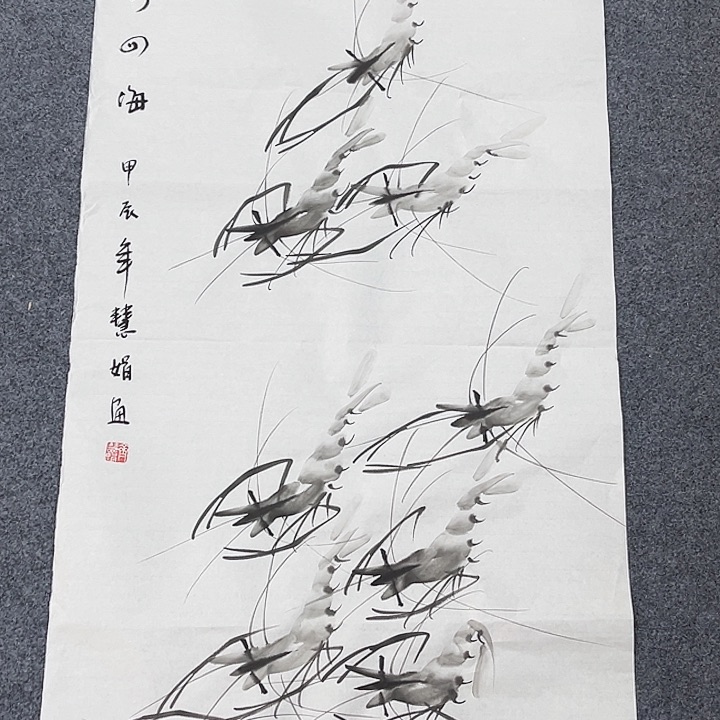 四海甲辰年慧娟画